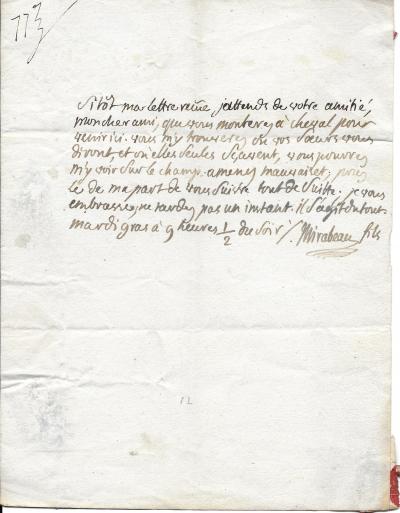 773
Sitôt ma lettre reçüe j'attends de votre amitié,
mon cher ami, que vous monterez à cheval pour
venir ici. vous m'y trouverez où vos sœurs vous
diront, et où elles seules sçavent, vous pouvez
m'y voir sur le champ. amenez mauvaiset, priez
le de ma part de vous suivre tout de suite. je vous
embrasse, ne tardez pas un instant. il s'agit du tout.
mardi gras à 9 heures 1/2 du soir /. Mirabeau fils
12